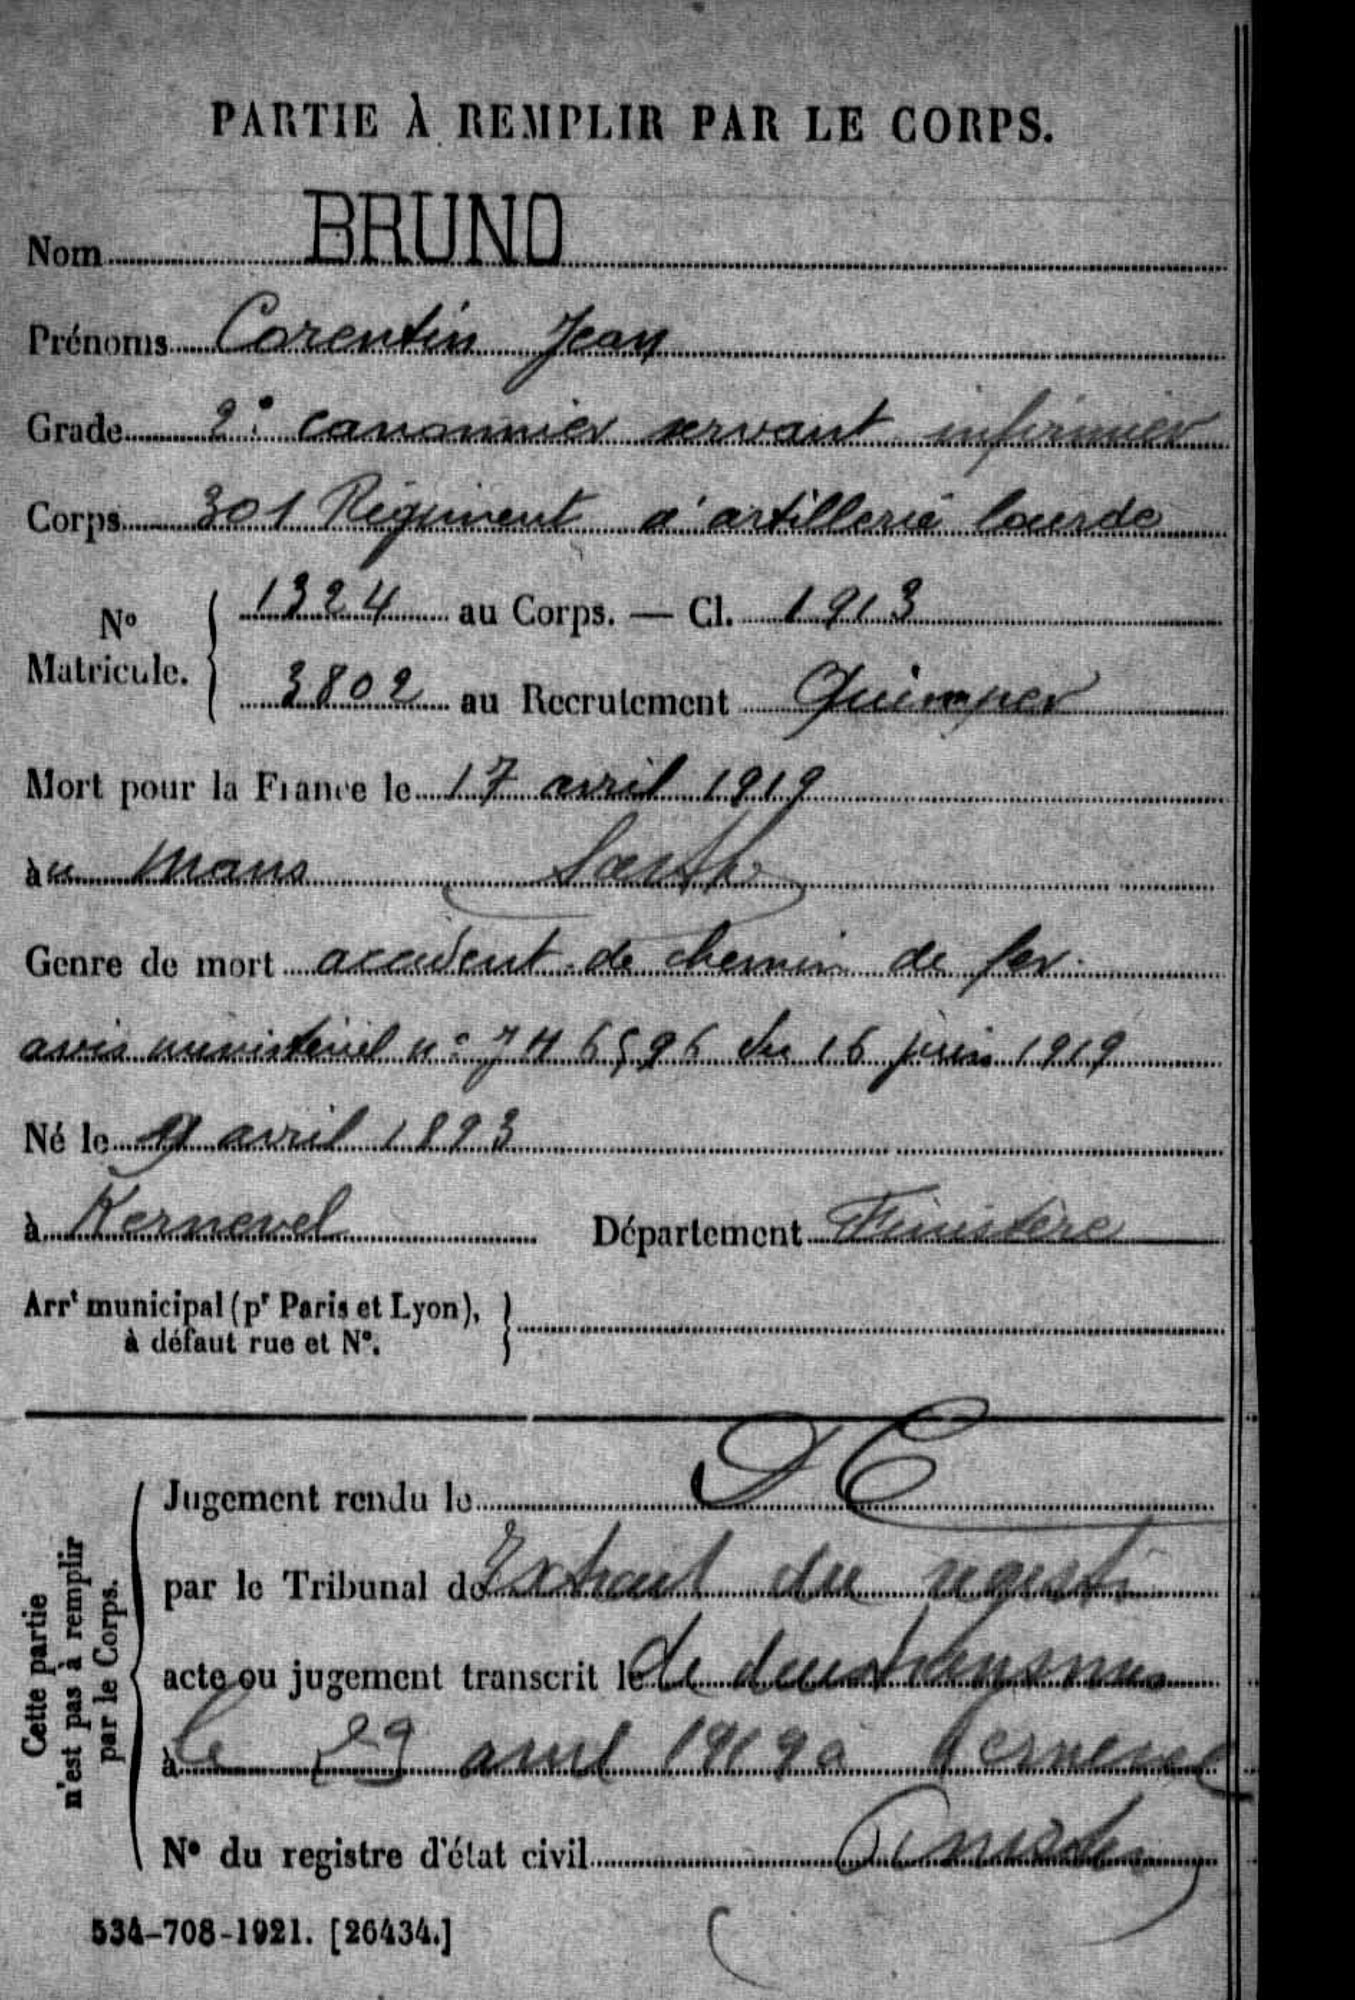 PARTIE À REMPLIR PAR LE CORPS.
Nom BRUNO
Prénoms Corentin Jean
Grade 2e canonnier servant infirmier
Corps 301 Régiment d'artillerie lourde
No Matricule. { 1324 au Corps. — Cl. 1913
3802 au Recrutement Quimper
Mort pour la France le 17 avril 1919
au Mans Sarthe
Genre de mort accident de chemin de fer.
avis ministériel no 746596 du 16 juin 1919
Né le 9 avril 1893
à Kernevel Département Finistère
Arrt municipal (pr Paris et Lyon),
à défaut rue et No.
Cette partie
n'est pas à remplir
par le Corps.
Jugement rendu le DC
par le Tribunal de Extrait du
acte ou jugement transcrit le de
à le 29 avril 1919 à Kernevel
No du registre d'état civil Finistère
534-708-1921. [26434.]